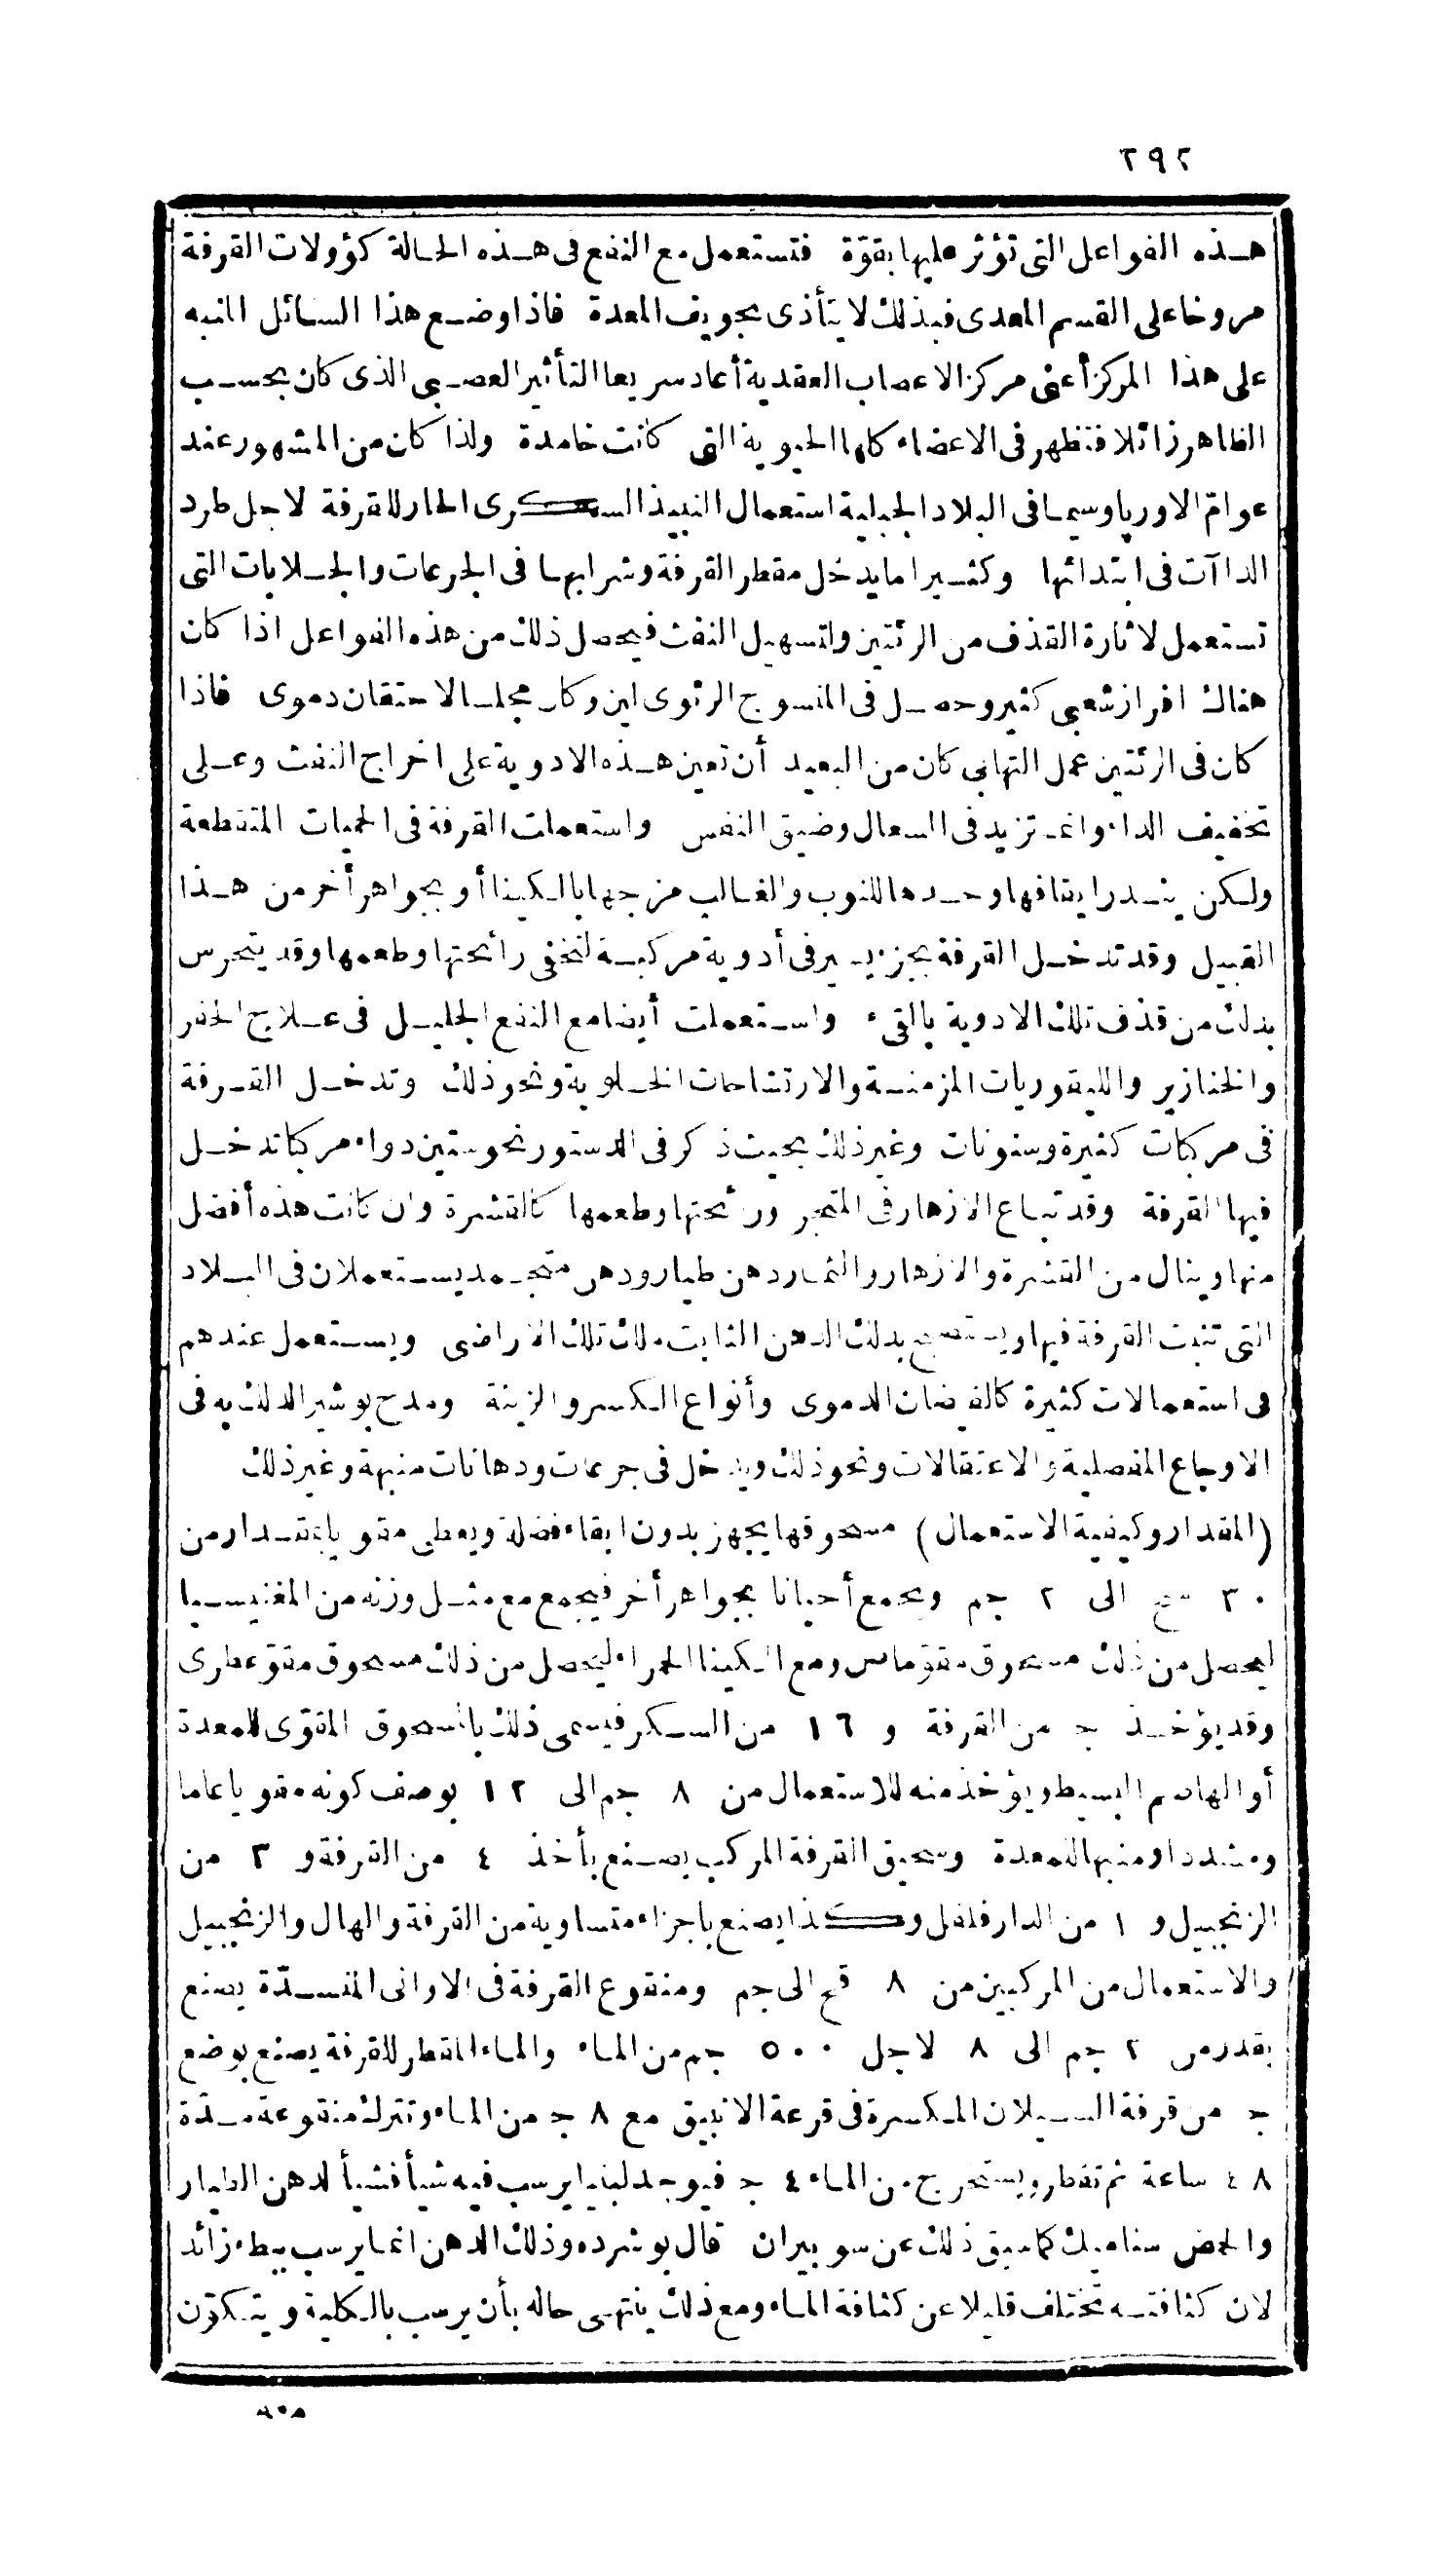 ٢٩٢
هذه الفواعل التى تؤثر عليها بقوّة فتستعمل مع النفع فى هذه الحالة كؤولات القرفة
مروخا على القسم المعدى فبذلك لا يتأذى تجويف المعدة فاذا وضع هذا السائل المنبه
على هذا المركز أعنى مركز الاعصاب العقدية أعاد سريعا التأثير العصبى الذى كان بحسب
الظاهر زائلا فتظهر فى الاعضاء كلها الحيوية التى كانت خامدة ولذا كان من المشهور عند
عوامّ الاورپا وسيما فى البلاد الجبلية استعمال النبيذ السكرى الحار للقرفة لاجل طرد
الداآت فى ابتدائها وكثيرا ما يدخل مقطر القرفة وشرابها فى الجرعات والجلابات التى
تستعمل لاثارة القذف من الرئتين ولتسهيل النفث فيحصل ذلك من هذه الفواعل اذا كان
هناك افراز شعبى كثير وحصل فى المنسوج الرئوى لين وكان مجلسا لاحتقان دموى فاذا
كان فى الرئتين عمل التهابى كان من البعيد أن تعين هذه الادوية على اخراج النفث وعلى
تخفيف الداء وانما تزيد فى السعال وضيق النفس واستعملت القرفة فى الحميات المتقطعة
ولكن يندر ايقافها وحدها للنوب والغالب مزجها بالكينا أو بجواهر أخر من هذا
القبيل وقد تدخل القرفة بجزء يسير فى أدوية مركبة لتخفى رائحتها وطعمها وقد يتحرس
بذلك من قذف تلك الادوية بالقىء واستعملت أيضا مع النفع الجليل فى علاج الحفر
والخنازير والليقوريات المزمنة والارتشاحات الخلوية ونحو ذلك وتدخل القرفة
فى مركبات كثيرة وسنونات وغير ذلك بحيث ذكر فى الدستور نحو ستين دواء مركبا تدخل
فيها القرفة وقد تباع الازهار فى المتجر ورائحتها وطعمها كالقشرة وان كانت هذه أفضل
منها وينال من القشرة والازهار والثمار دهن طيار ودهن متجمد يستعملان فى البلاد
التى تنبت القرفة فيها ويستصبح بذلك الدهن الثابت ملك تلك الاراضى ويستعمل عندهم
فى استعمالات كثيرة كالفيضان الدموى وأنواع الكسر والزينة ومدح بوشير الدلك به فى
الاوجاع المفصلية والاعتقالات ونحو ذلك ويدخل فى جرعات ودهانات منبهة وغير ذلك
(المقدار وكيفية الاستعمال) مسحوقها يجهز بدون ابقاء فضلة ويعطى مقويا بمقدار من
٣٠ سج الى ٢ جم ويجمع أحيانا بجواهر أخر فيجمع مع مثل وزنه من المغنيسيا
ليحصل من ذلك مسحوق مقوّ ماص ومع الكينا الحمراء ليحصل من ذلك مسحوق مقوّ عطرى
وقد يؤخذ جـ من القرفة و ١٦ من السكر فيسمى ذلك بالمسحوق المقوّى للمعدة
أو الهاضم البسيط ويؤخذ منه للاستعمال من ٨ جم الى ١٢ بوصف كونه مقويا عاما
ومشددا ومنبها للمعدة وسحيق القرفة المركب يصنع بأخذ ٤ من القرفة و ٣ من
الزنجبيل و ١ من الدار فلفل وكذا يصنع باجزاء متساوية من القرفة والهال والزنجبيل
والاستعمال من المركبين من ٨ قمح الى جم ومنقوع القرفة فى الاوانى المنسدّة يصنع
بقدر من ٢ جم الى ٨ لاجل ٥٠٠ جم من الماء والماء المقطر للقرفة يصنع بوضع
جـ من قرفة السيلان المكسرة فى قرعة الانبيق مع ٨ جـ من الماء وتترك منقوعة مدّة
٤٨ ساعة ثم تقطر ويستخرج من الماء ٤ جـ فيوجد لبنيا يرسب فيه شيأ فشيأ الدهن الطيار
والحمض سناميك كما سبق ذلك عن سوبيران قال بوشرده وذلك الدهن انما يرسب ببطء زائد
لان كثافته تختلف قليلا عن كثافة الماء ومع ذلك ينتهى حاله بأن يرسب بالكلية ويتكوّن